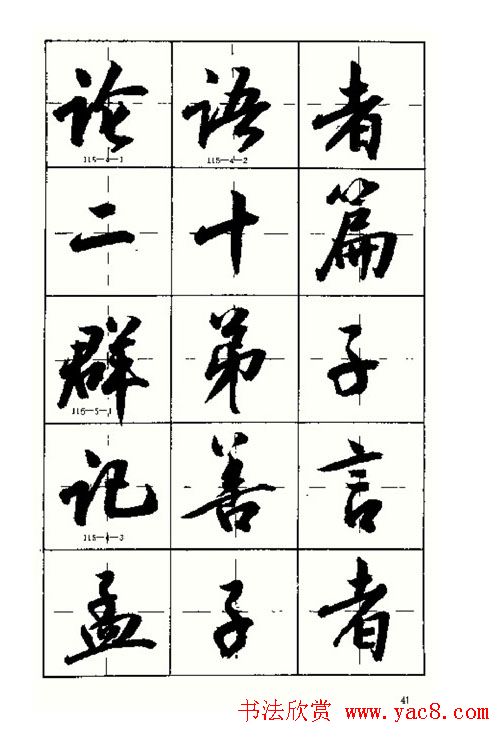 论语者
115-4-1 115-4-2
二十篇
群弟子
116-5-1
记善言
115-4-3
孟子者
41
书法欣赏 www.yac8.com